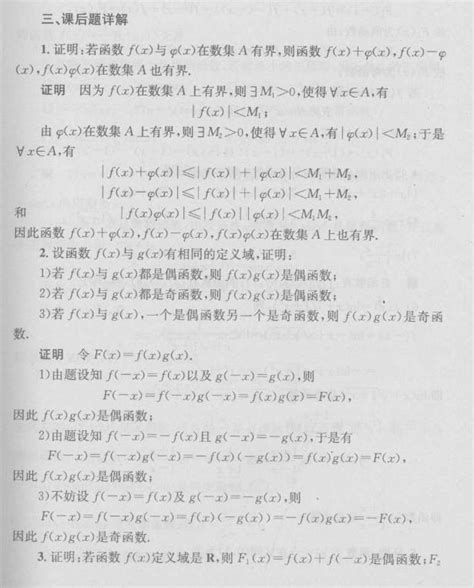 三、课后题详解
1. 证明:若函数 f(x)与 φ(x)在数集 A 有界,则函数 f(x)+φ(x),f(x)-φ
(x),f(x)φ(x)在数集 A 也有界.
证明 因为 f(x)在数集 A 上有界,则∃M₁>0,使得∀x∈A,有
|f(x)|<M₁;
由 φ(x)在数集 A 上有界,则∃M₂>0,使得∀x∈A,有|φ(x)|<M₂;于是
∀x∈A,有
|f(x)+φ(x)|≤|f(x)|+|φ(x)|<M₁+M₂,
|f(x)-φ(x)|≤|f(x)|+|φ(x)|<M₁+M₂,
和 |f(x)φ(x)|≤|f(x)||φ(x)|<M₁M₂,
因此函数 f(x)+φ(x),f(x)-φ(x),f(x)φ(x)在数集 A 上也有界.
2. 设函数 f(x)与 g(x)有相同的定义域,证明:
1)若 f(x)与 g(x)都是偶函数,则 f(x)g(x)是偶函数;
2)若 f(x)与 g(x)都是奇函数,则 f(x)g(x)是偶函数;
3)若 f(x)与 g(x),一个是偶函数另一个是奇函数,则 f(x)g(x)是奇函
数.
证明 令 F(x)=f(x)g(x).
1)由题设知 f(-x)=f(x)以及 g(-x)=g(x),则
F(-x)=f(-x)g(-x)=f(x)g(x)=F(x),
因此 f(x)g(x)是偶函数;
2)由题设知 f(-x)=-f(x)且 g(-x)=-g(x),于是有
F(-x)=f(-x)g(-x)=-f(x)(-g(x))=f(x)g(x)=F(x),
因此 f(x)g(x)是偶函数;
3)不妨设 f(-x)=f(x)及 g(-x)=-g(x),则
F(-x)=f(-x)g(-x)=f(x)(-g(x))=-f(x)g(x)=-F(x),
因此 f(x)g(x)是奇函数.
3. 证明:若函数 f(x)定义域是 R,则 F₁(x)=f(x)+f(-x)是偶函数;F₂